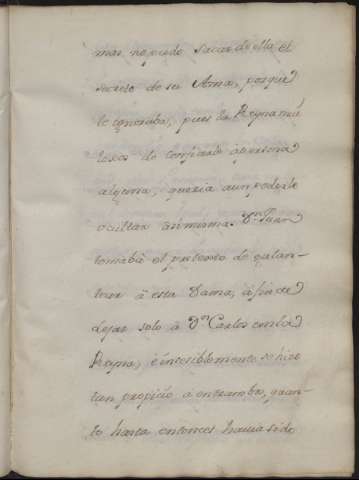 mas no pudo sacar de ella el
secreto de su Ama, porque
lo ignoraba, pues la Reyna mui
lexos de confiarlo à persona
alguna, queria aun poderlo
ocultar asi misma. Dn. Juan
tomaba el pretexto de galan-
tear à esta Dama, à fin de
dejar solo à Dn. Carlos con la
Reyna, è insensiblemente se hizo
tan propicio a entrambos, quan-
to hasta entonces havia sido